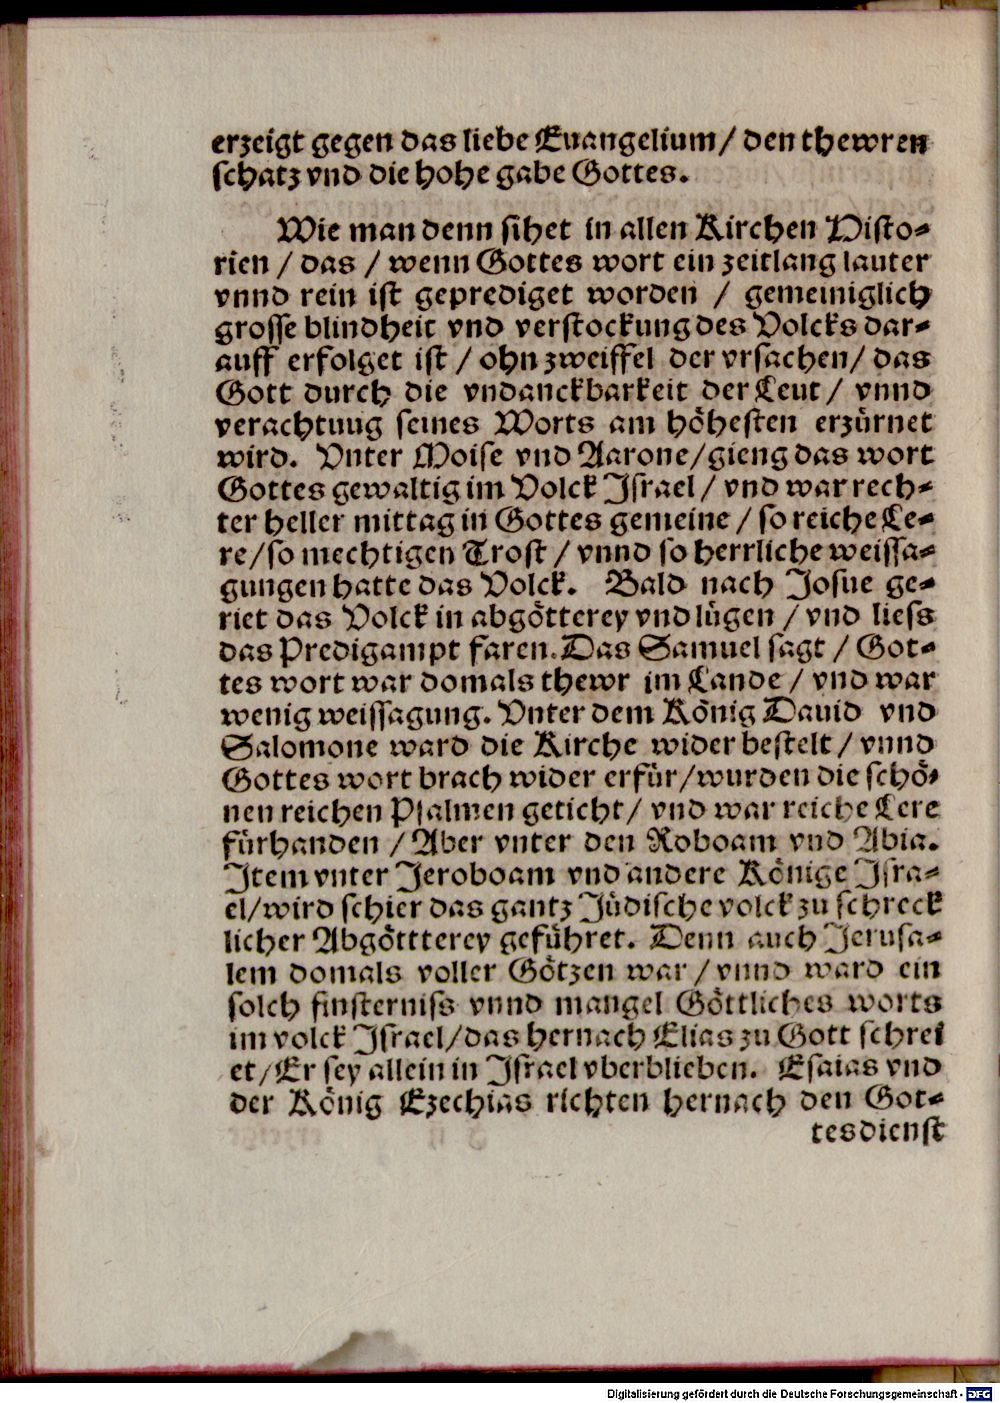 erzeigt gegen das liebe Euangelium / den thewren
schatz vnd die hohe gabe Gottes.
Wie man denn sihet in allen Kirchen Histo-
rien / das / wenn Gottes wort ein zeitlang lauter
vnnd rein ist geprediget worden / gemeiniglich
grosse blindheit vnd verstockung des Volcks dar-
auff erfolget ist / ohn zweiffel der vrsachen / das
Gott durch die vndanckbarkeit der Leut / vnnd
verachtung seines Worts am höhesten erzürnet
wird. Vnter Moise vnd Aarone / gieng das wort
Gottes gewaltig im Volck Israel / vnd war rech-
ter heller mittag in Gottes gemeine / so reiche Le-
re / so mechtigen Trost / vnnd so herrliche weissa-
gungen hatte das Volck. Bald nach Josue ge-
riet das Volck in abgötterey vnd lügen / vnd liess
das Predigampt faren. Das Samuel sagt / Got-
tes wort war domals thewr im Lande / vnd war
wenig weissagung. Vnter dem König Dauid vnd
Salomone ward die Kirche wider bestelt / vnnd
Gottes wort brach wider erfür / wurden die schö-
nen reichen Psalmen geticht / vnd war reiche Lere
fürhanden / Aber vnter den Roboam vnd Abia.
Item vnter Jeroboam vnd andere Könige Isra-
el / wird schier das gantz Jüdische volck zu schreck
licher Abgöttterey geführet. Denn auch Jerusa-
lem domals voller Götzen war / vnnd ward ein
solch finsterniss vnnd mangel Göttliches worts
im volck Israel / das hernach Elias zu Gott schrei
et / Er sey allein in Israel vberblieben. Esaias vnd
der König Ezechias richten hernach den Got-
tesdienst
Digitalisierung gefördert durch die Deutsche Forschungsgemeinschaft - DFG